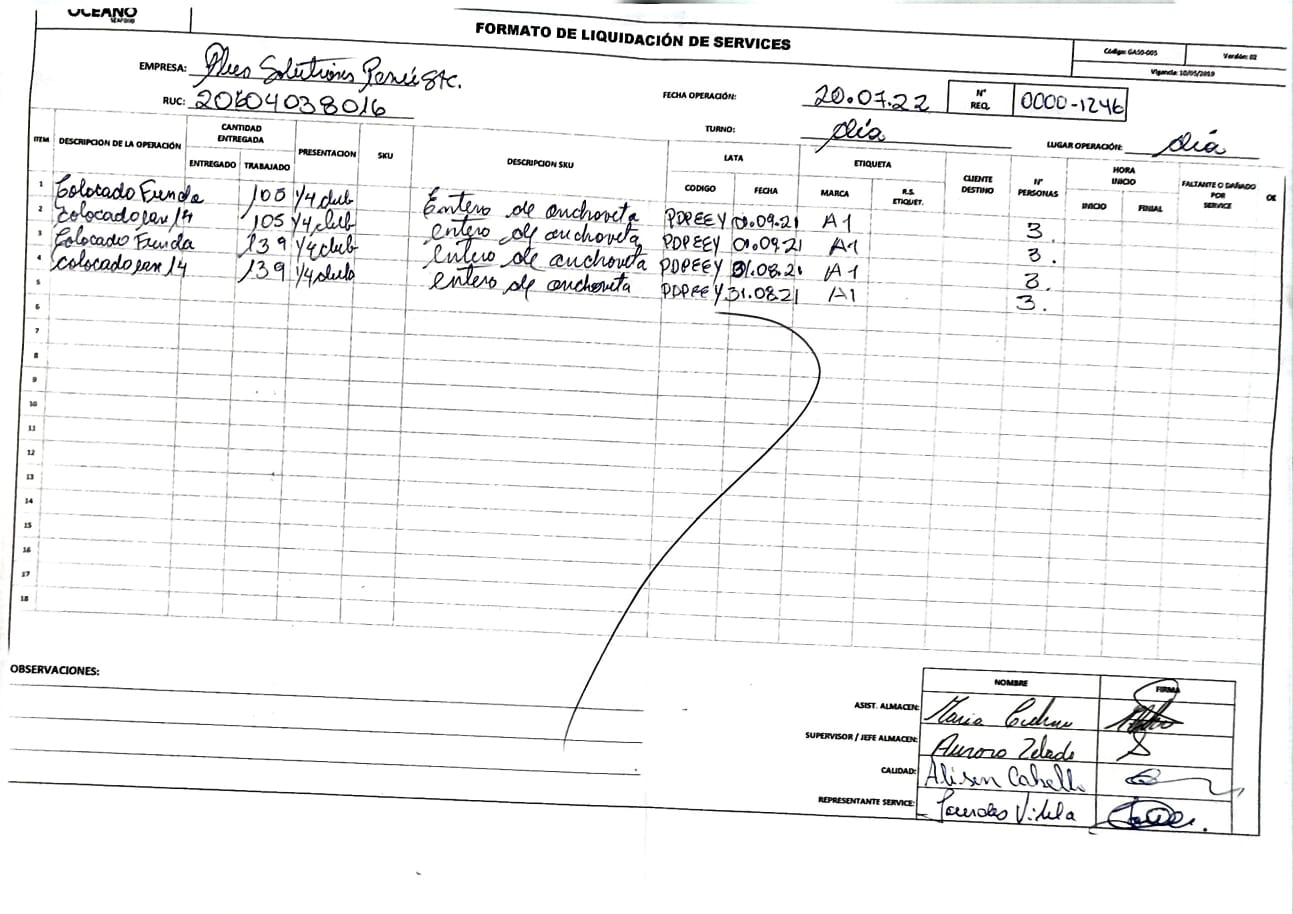 OCEANO
SEAFOOD
FORMATO DE LIQUIDACIÓN DE SERVICES
Código: GASO-005 Versión: 02
Vigencia: 10/05/2019
EMPRESA: Solutions Perú SAC.
RUC: 20604038016
FECHA OPERACIÓN: 20.07.22
N° REQ. 0000-1246
TURNO: día
LUGAR OPERACIÓN: día
ITEM DESCRIPCION DE LA OPERACIÓN CANTIDAD ENTREGADA PRESENTACION SKU DESCRIPCION SKU LATA ETIQUETA CLIENTE DESTINO N° PERSONAS HORA INICIO FALTANTE O DAÑADO POR SERVICE OE
ENTREGADO TRABAJADO CODIGO FECHA MARCA R.S. ETIQUET. INICIO FINIAL
1 Colocado Funda 105 1/4 club Entero de anchoveta PDPEEY 01.09.21 A1 3.
2 Colocado 14 105 1/4 club entero de anchoveta PDPEEY 01.09.21 A1 3.
3 Colocado Funda 139 1/4 club entero de anchoveta PDPEEY 31.08.21 A1 3.
4 Colocado 14 139 1/4 club entero de anchoveta PDPEEY 31.08.21 A1 3.
5
6
7
8
9
10
11
12
13
14
15
16
17
18
OBSERVACIONES:
NOMBRE FIRMA
ASIST. ALMACEN: Maria
SUPERVISOR / JEFE ALMACEN: Aurora
CALIDAD: Alison Cabello
REPRESENTANTE SERVICE: Lourdes Vilela